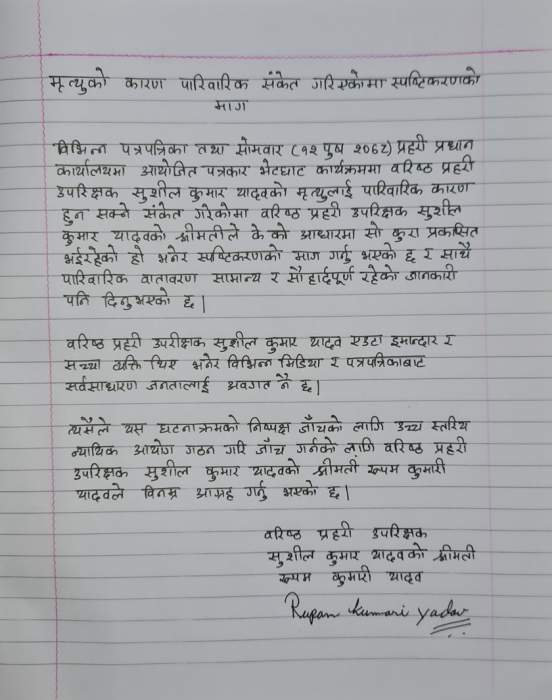 मृत्युको कारण पारिवारिक संकेत गरिएकोमा स्पष्टिकरणको
माग
विभिन्न पत्रपत्रिका तथा सोमवार (१२ पुष २०६८) प्रहरी प्रधान
कार्यालयमा आयोजित पत्रकार भेटघाट कार्यक्रममा वरिष्ठ प्रहरी
उपरिक्षक सुशील कुमार यादवको मृत्युलाई पारिवारिक कारण
हुन सक्ने संकेत गरेकोमा वरिष्ठ प्रहरी उपरिक्षक सुशील
कुमार यादवको श्रीमतीले के को आधारमा सो कुरा प्रकासित
भईरहेको हो भनेर स्पष्टिकरणको माग गर्नु भएको छ र साथै
पारिवारिक वातावरण सामान्य र सौहार्दपूर्ण रहेको जानकारी
पनि दिनुभएको छ।
वरिष्ठ प्रहरी उपरीक्षक सुशील कुमार यादव एउटा इमान्दार र
सच्चा व्यक्ति थिए भनेर विभिन्न मिडिया र पत्रपत्रिकाबाट
सर्वसाधारण जनतालाई अवगत नै छ।
त्यसैले यस घटनाक्रमको निष्पक्ष जाँचको लागि उच्च स्तरिय
न्यायिक आयोग गठन गरि जाँच गर्नको लागि वरिष्ठ प्रहरी
उपरिक्षक सुशील कुमार यादवको श्रीमती रूपम कुमारी
यादवले विनम्र आग्रह गर्नु भएको छ।
वरिष्ठ प्रहरी उपरिक्षक
सुशील कुमार यादवको श्रीमती
रूपम कुमारी यादव
Rupam kumari yadav